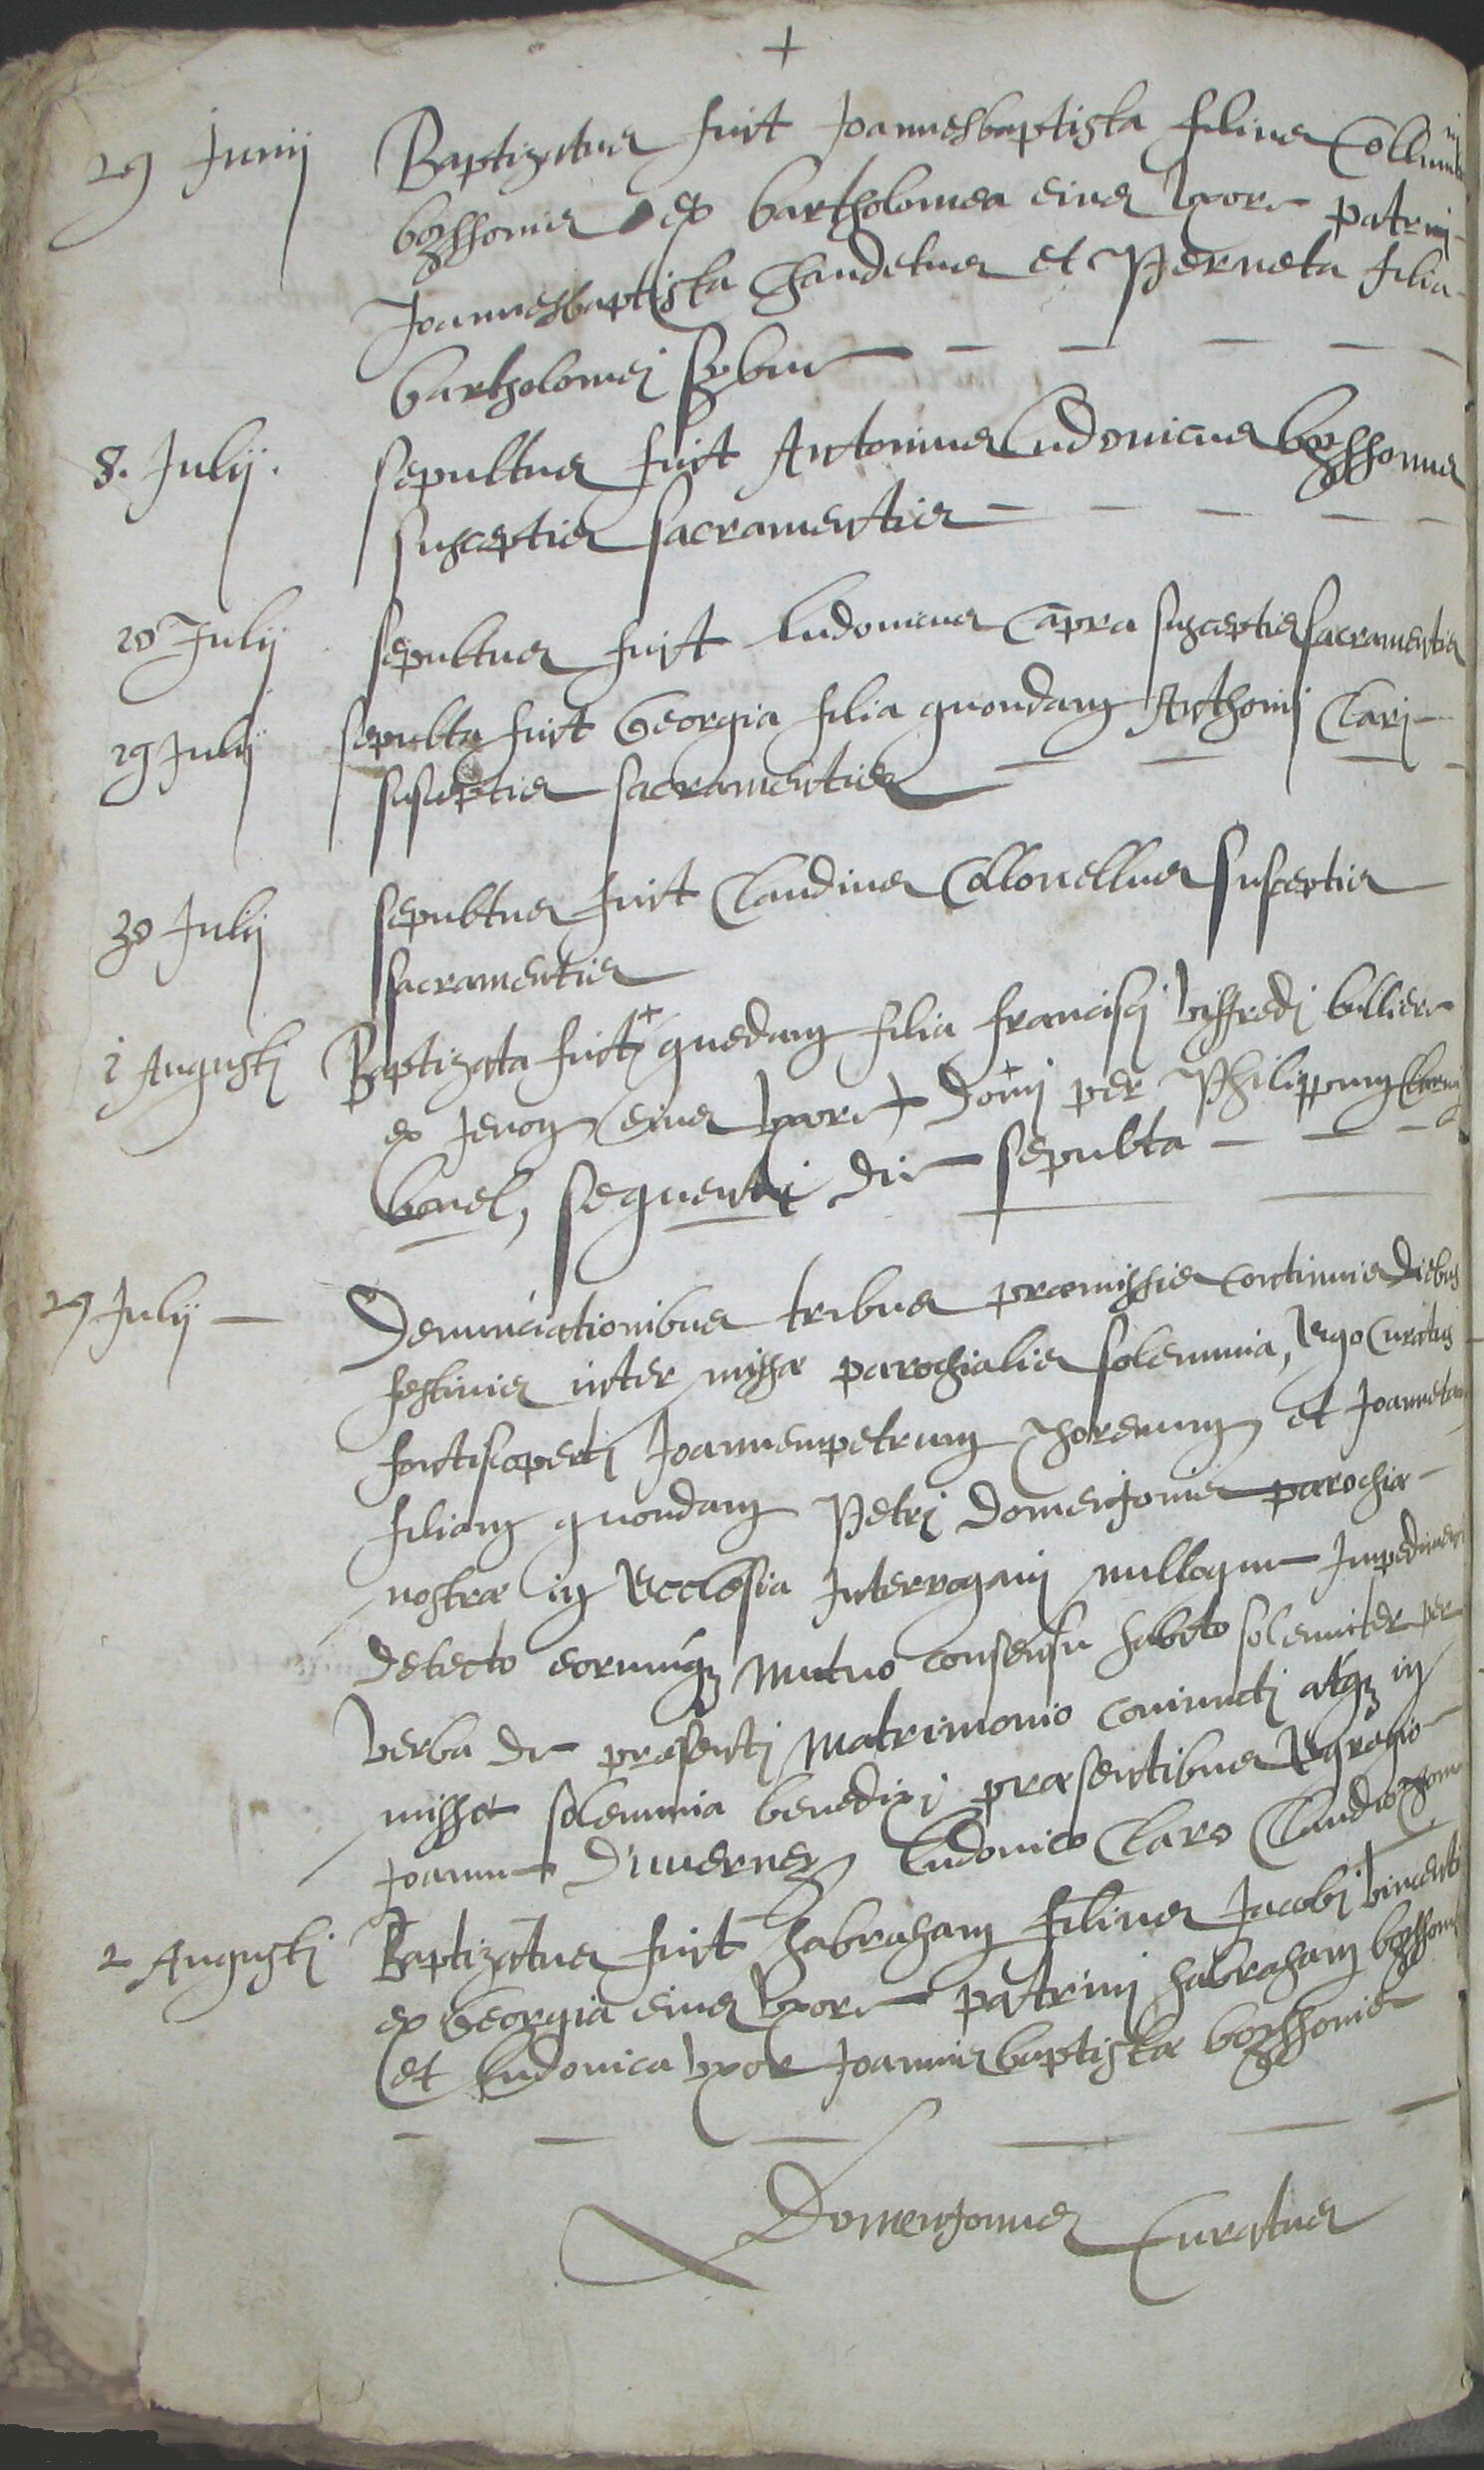 +
29 Junij Baptizatus fuit Joannesbaptista filius
bozssonis ex bartholomea eius uxore patrini
Joannesbaptista Chandetus et Perneta filia
Bartholomei
8. Julij. sepultus fuit Antonius Ludovicus bozssonus
susceptis sacramentis
20 Julij sepultus fuit Ludovicus Capra susceptis sacramentis
29 Julij sepulta fuit Georgia filia quondam Anthonij Clari
susceptis sacramentis
30 Julij sepultus fuit Claudius Collonellus susceptis
sacramentis
1 Augusti Baptizata fuit + quedam filia francisci Viffredi
ex eius uxore + domi per Philippum
bonel, sequenti die sepulta
27 Julij Denunciationibus tribus præmissis continuis diebus
festivis inter missæ parochialis solemnia, Ego Curatus
Joannempetrum Thorenum et Joannetam
filiam quondam Petri Domenjonis parochiæ
nostræ in Ecclesia Interrogavi nulloque
detecto eorumq3 mutuo consensu habito solemniter per
verba de præsenti Matrimonio coniuncti atq3 in
missæ solemnia benedixi præsentibus Egregio
Joanne Duverney Ludovico Claro Claudio
2 Augusti Baptizatus fuit habraham filius Jacobi Vincenti
ex Georgia eius uxore patrini habraham
et Ludovica uxor Joannisbaptistæ bozssonis
Domenjonus Curatus